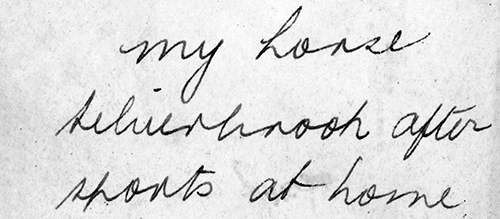 my horse
silverbrook after
sports at home